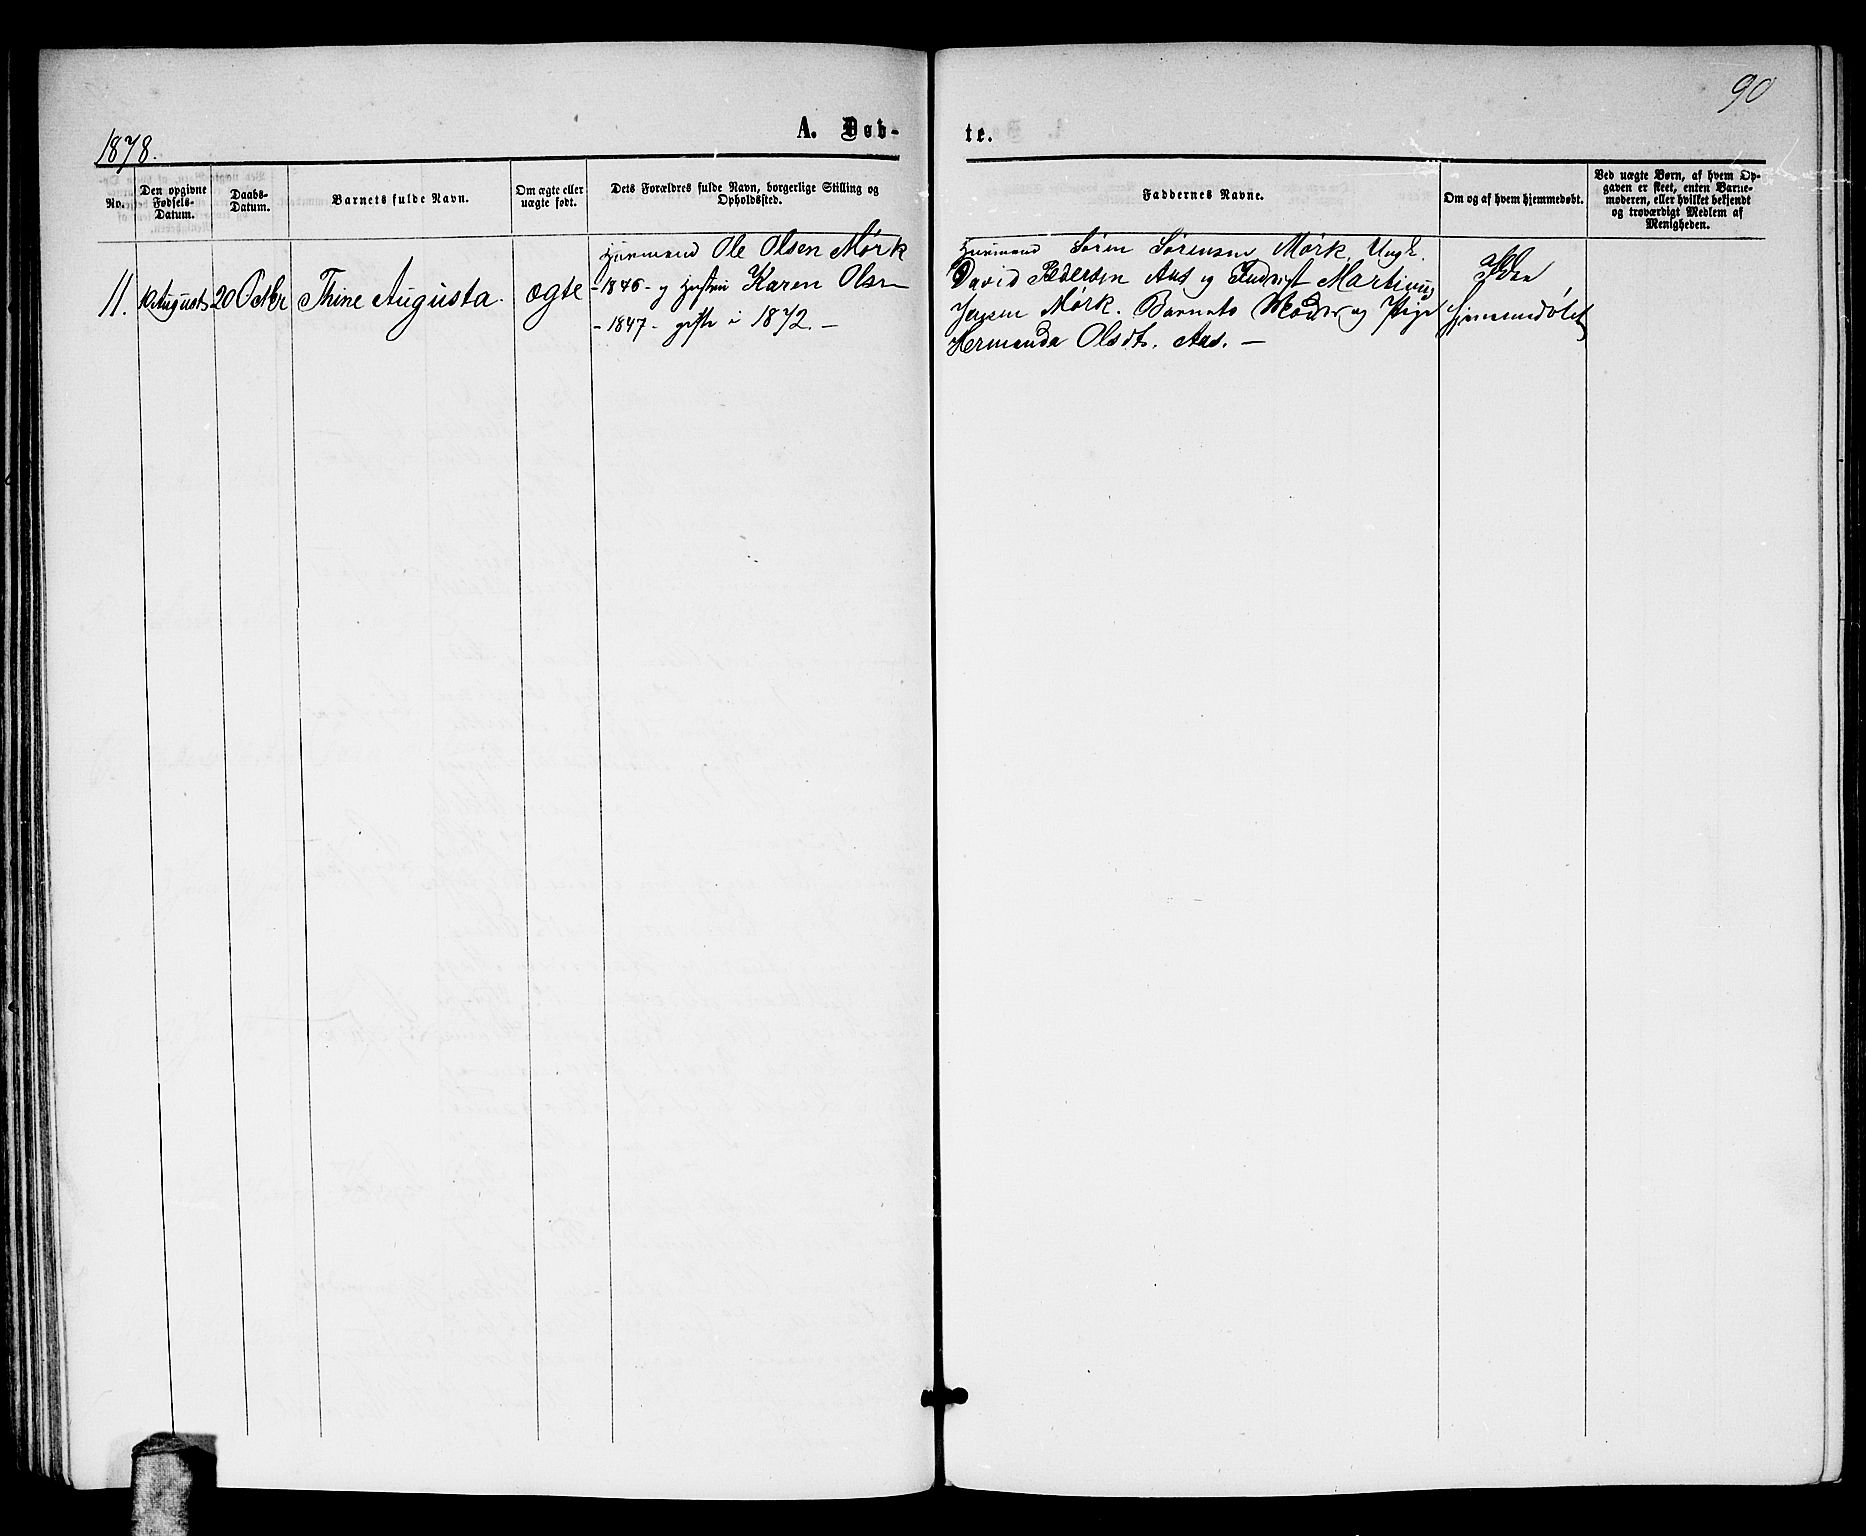 90
1878.
A. Døb-
te.
No.
Den opgivne
Fødsels-
Datum.
Daabs-
Datum.
Barnets fulde Navn.
Om ægte eller
uægte født.
Dets Forældres fulde Navn, borgerlige Stilling og
Opholdssted.
Faddernes Navne.
Om og af hvem hjemmedøbt.
Ved uægte Børn, af hvem Op-
gaven er skeet, enten Barne-
moderen, eller hvilket bekjendt
og troværdigt Medlem af
Menigheden.
11.
10 August
20 Octbr
Thine Augusta.
ægte
Huusmand Ole Olsen Mørk
- 1846 - og Hustru Karen Olsen
- 1847 - gifte i 1872. -
Huusmand Søren Sørensen Mørk, Ungk.
David Pedersen Aas og Martinus
Jensen Mørk. Barnets Moder og Pige
Hermanda Olsdt. Aas. -
ikke
hjemmedøbt